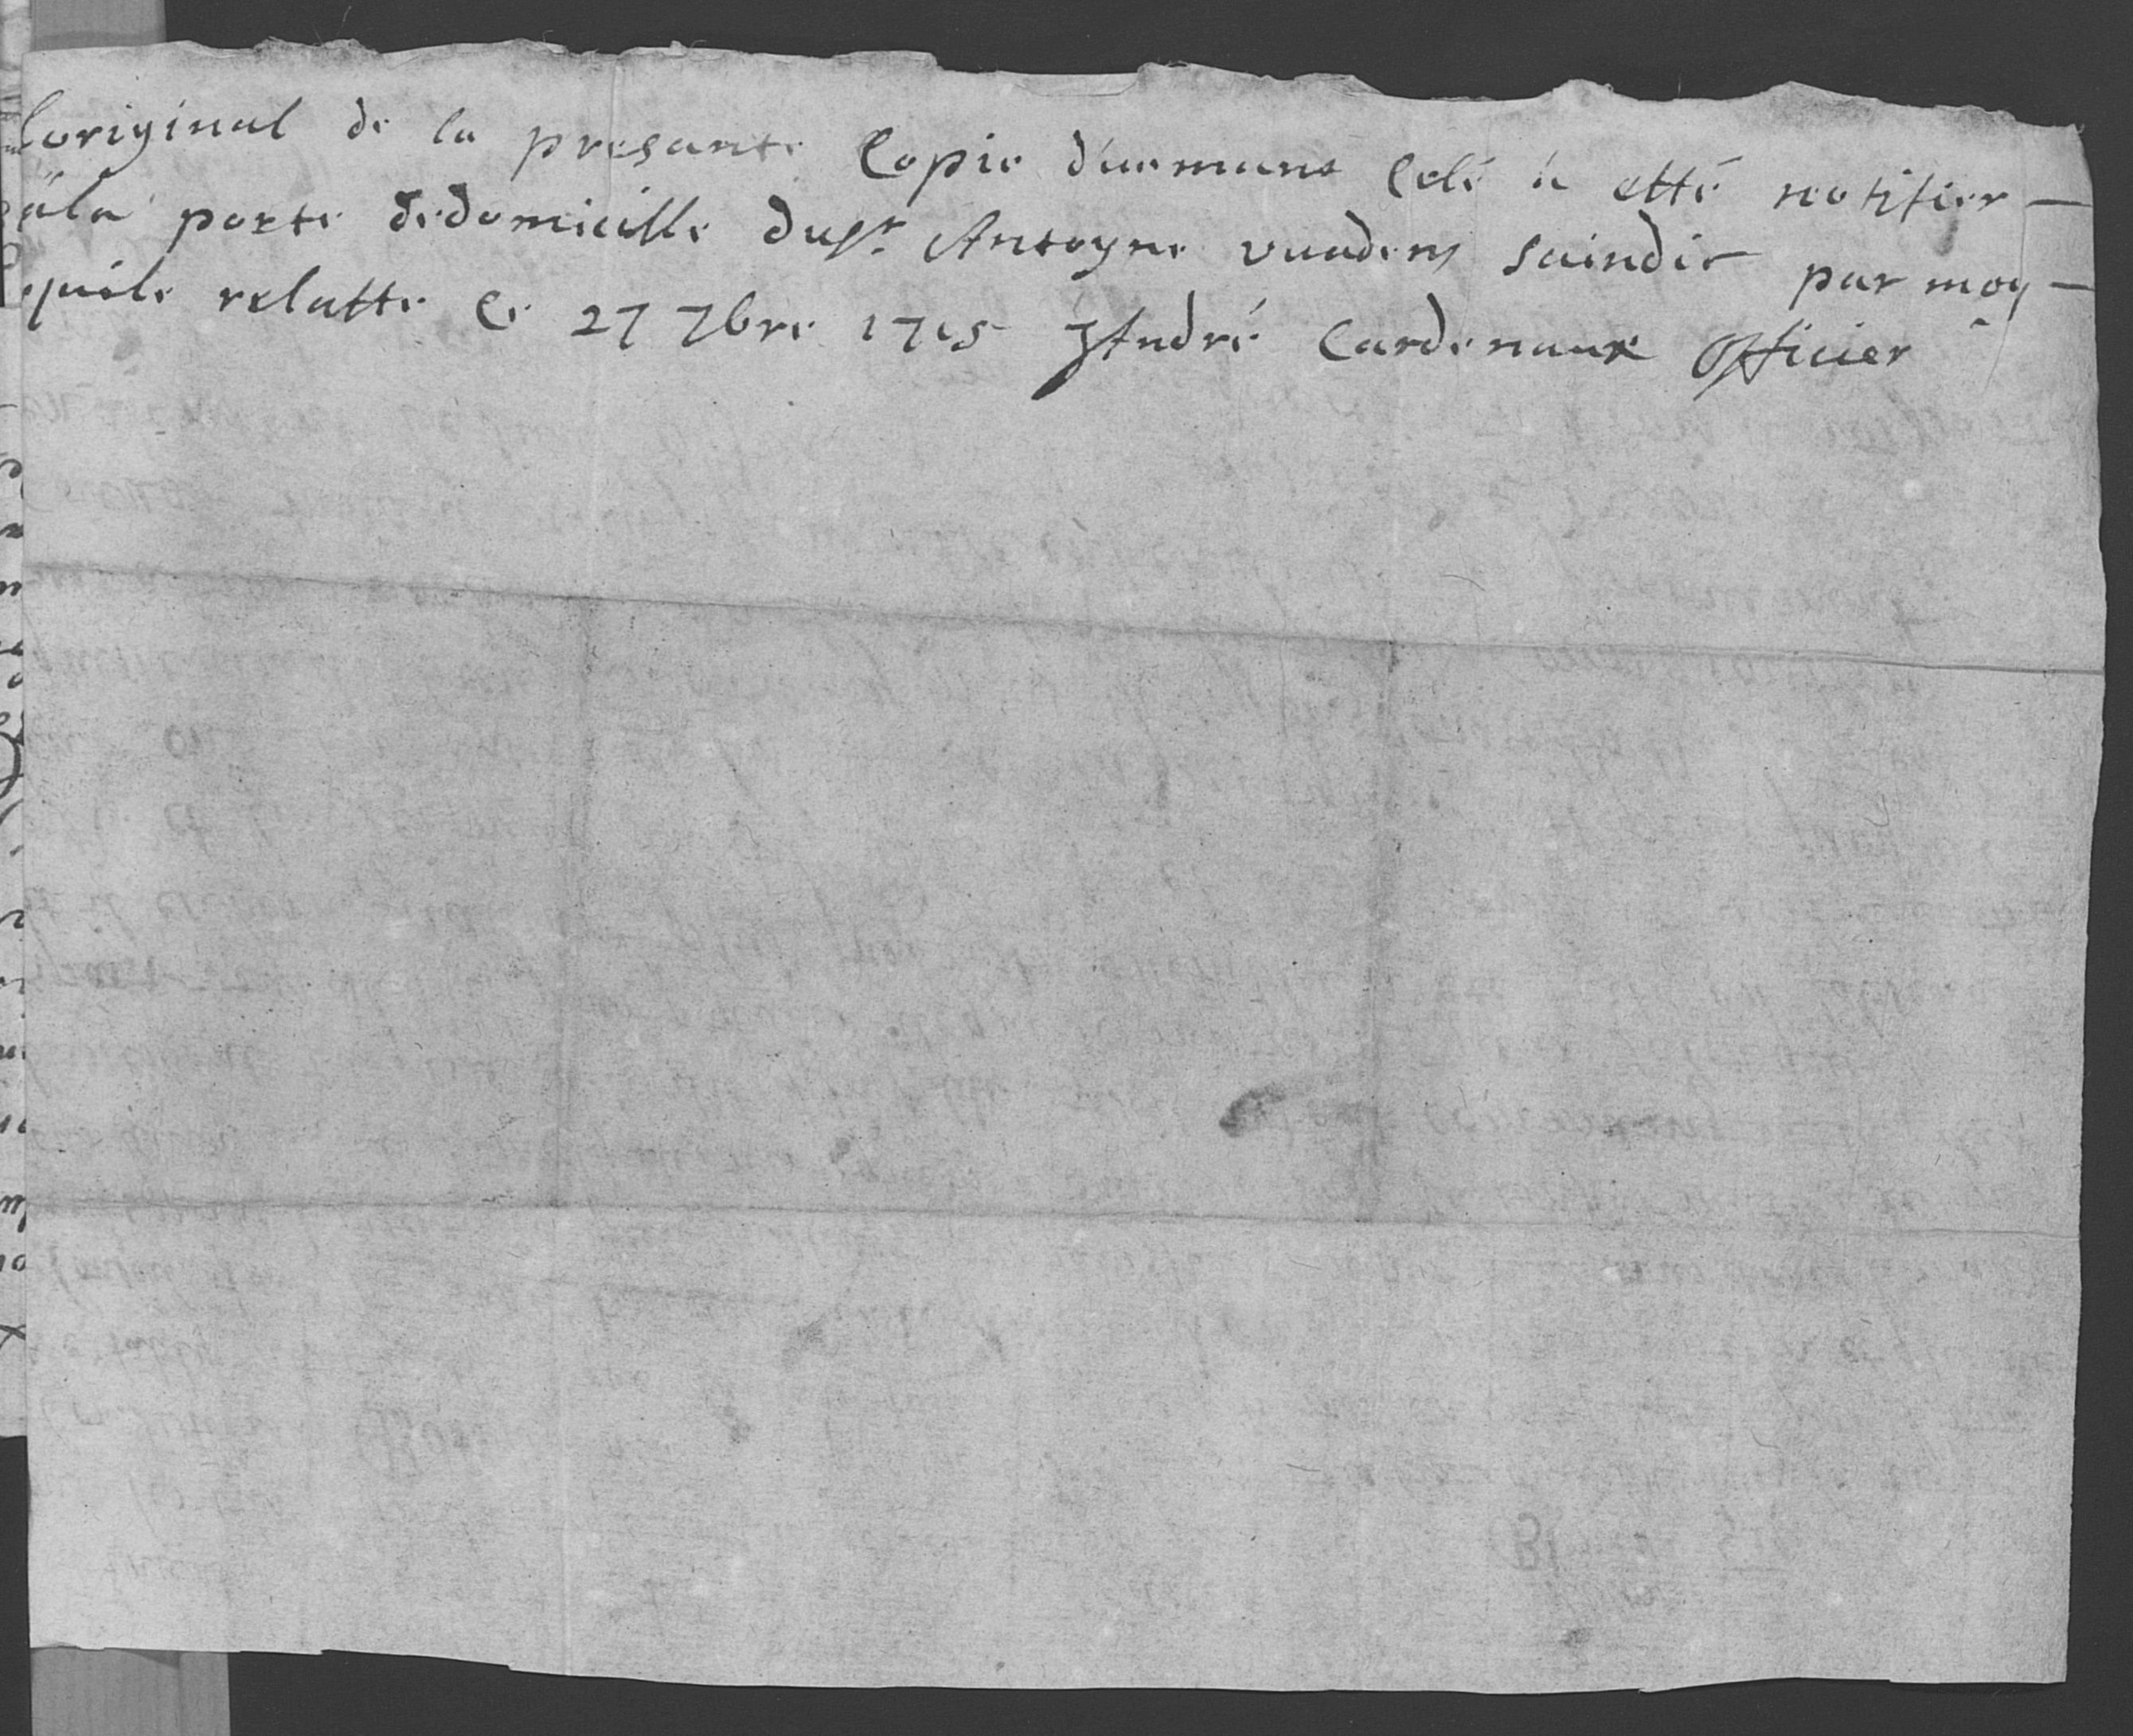 Loriginal de la presante Copie duemant Celé à etté notifier —
à la porte dedomicille du Sr Antoyne vuadens saindic par moy —
quile relatte le 27 7bre 1715 J André Cardenaux Officier